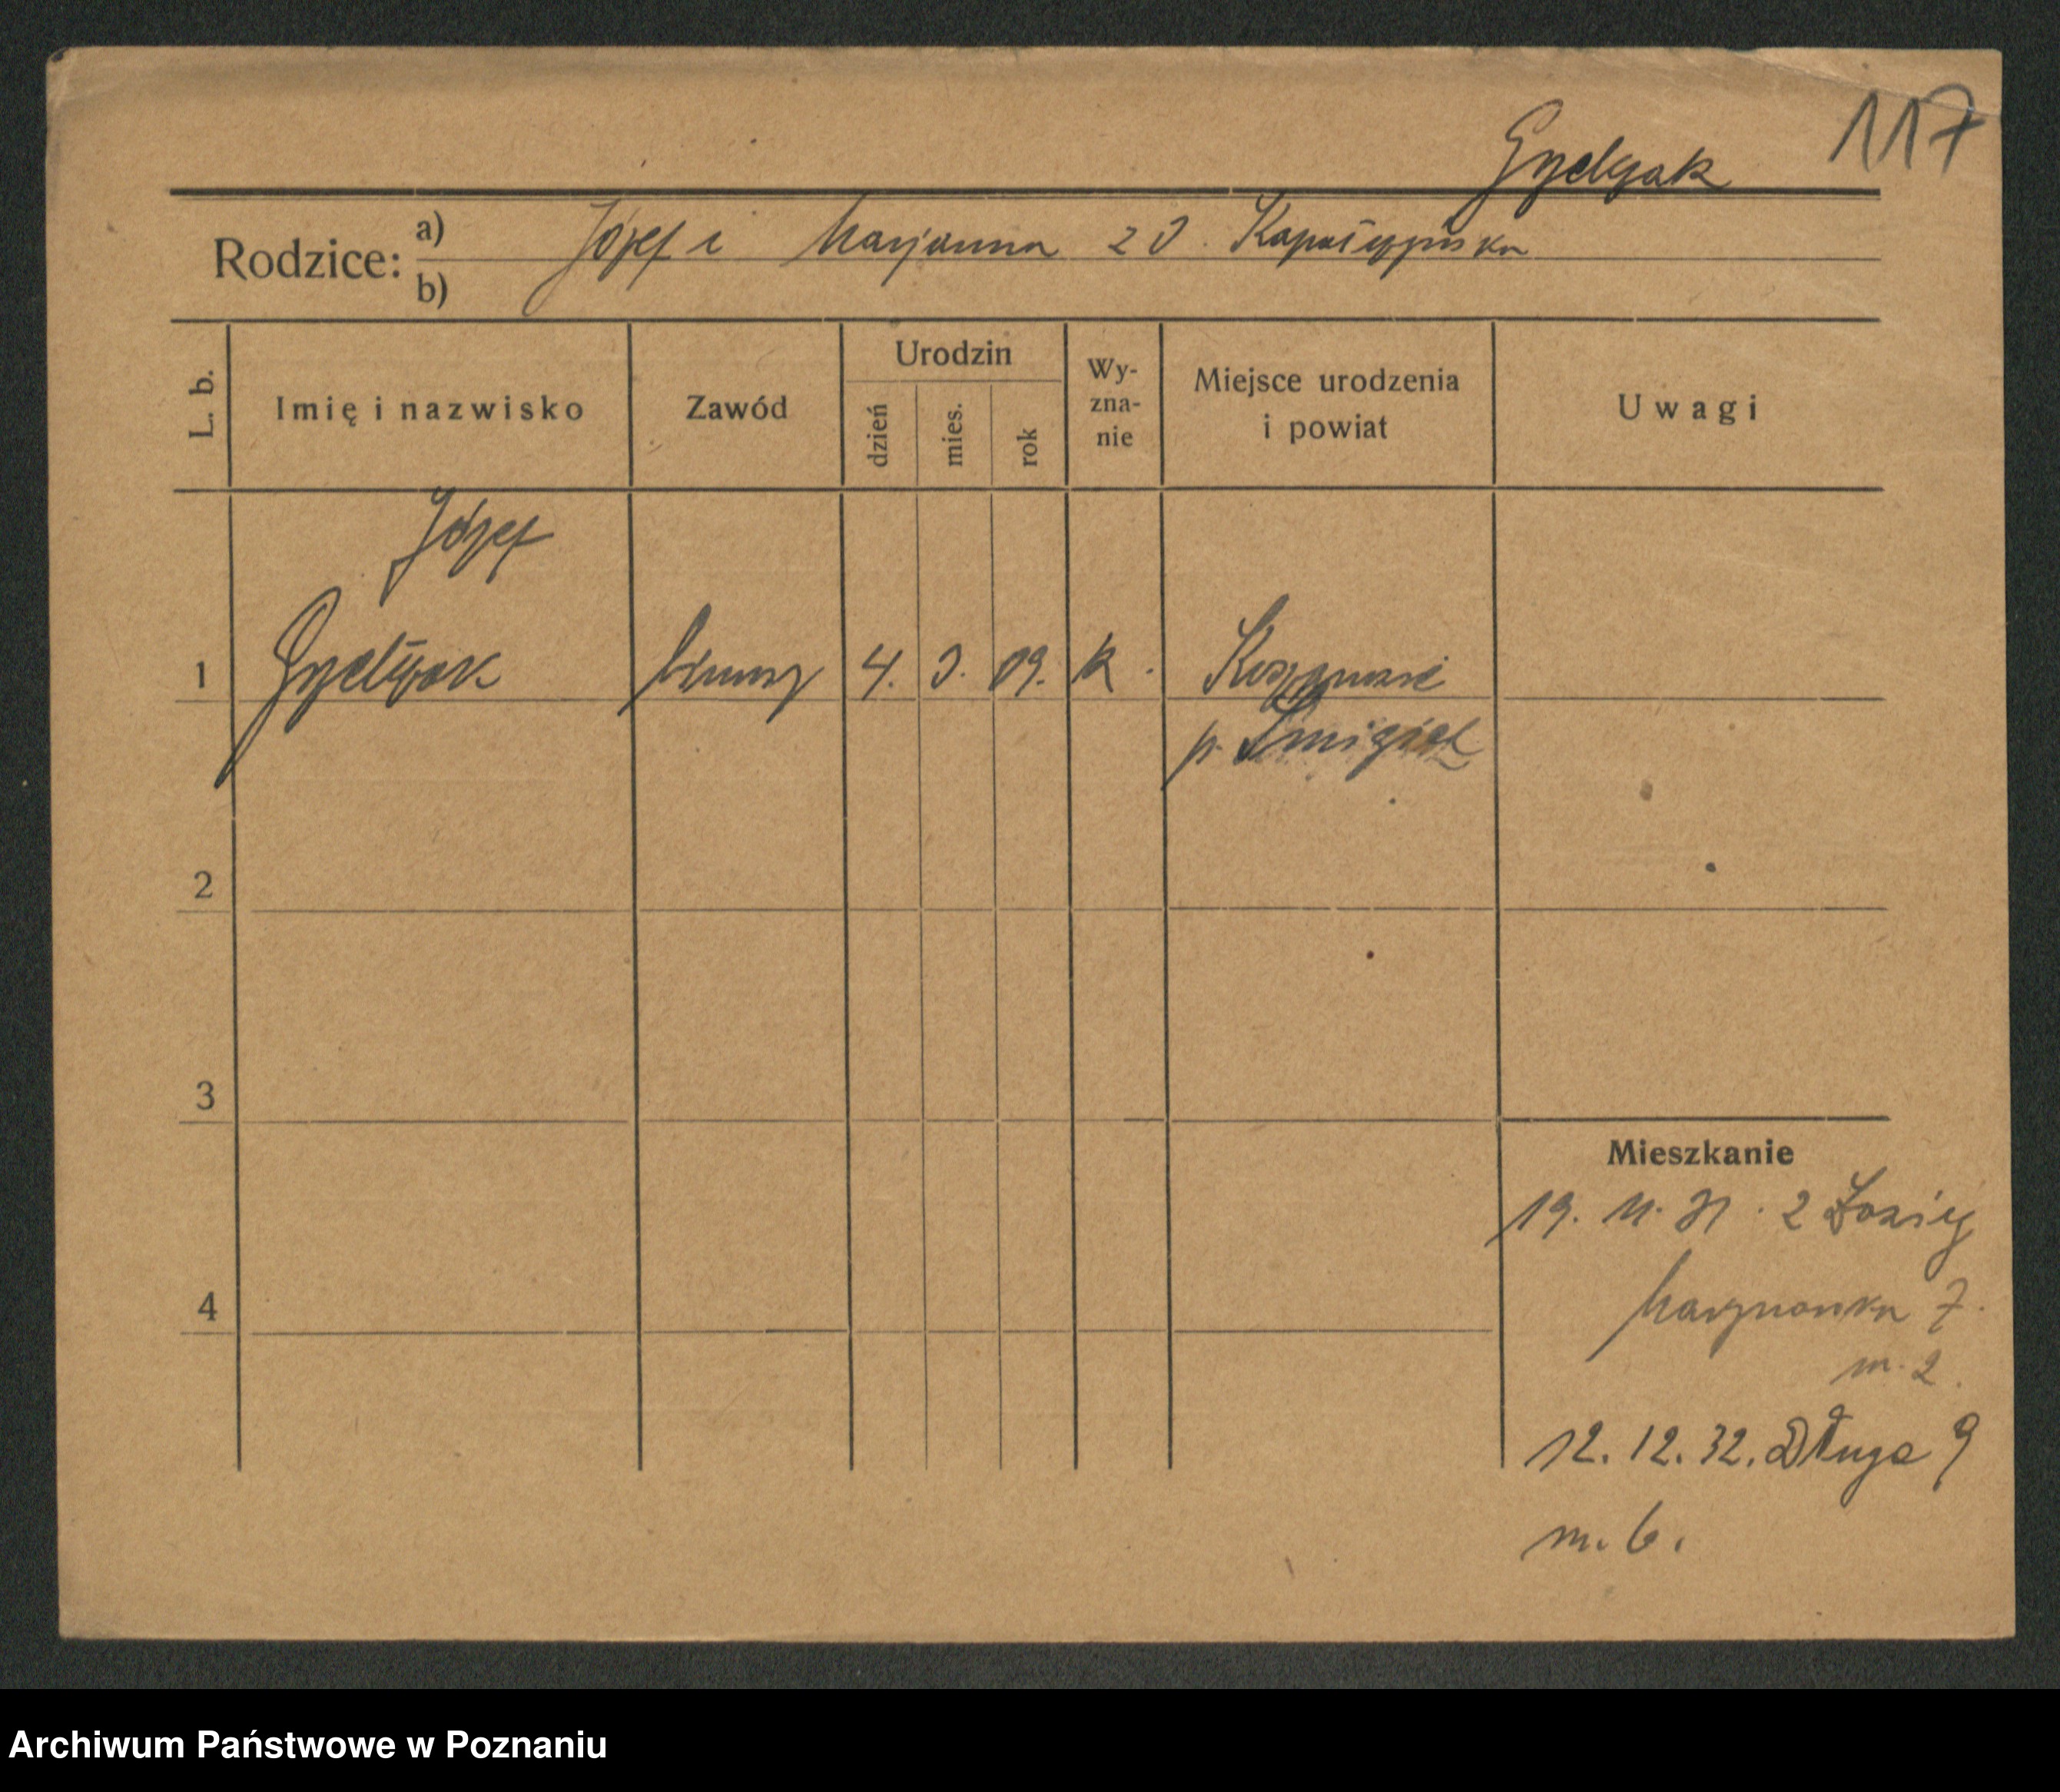 117
Grzelczak
Rodzice: a) Józef i Marjanna z d.
b)
L. b.
Imię i nazwisko
Zawód
Urodzin
dzień
mies.
rok
Wy-
zna-
nie
Miejsce urodzenia
i powiat
Uwagi
Józef
1 Grzelczak 4. 3. 09. k.
p. Śmigiel
2
3
Mieszkanie
19. 11. 31. z
4
7.
m. 2.
12. 12. 32. Długa 9
m. 6.
Archiwum Państwowe w Poznaniu